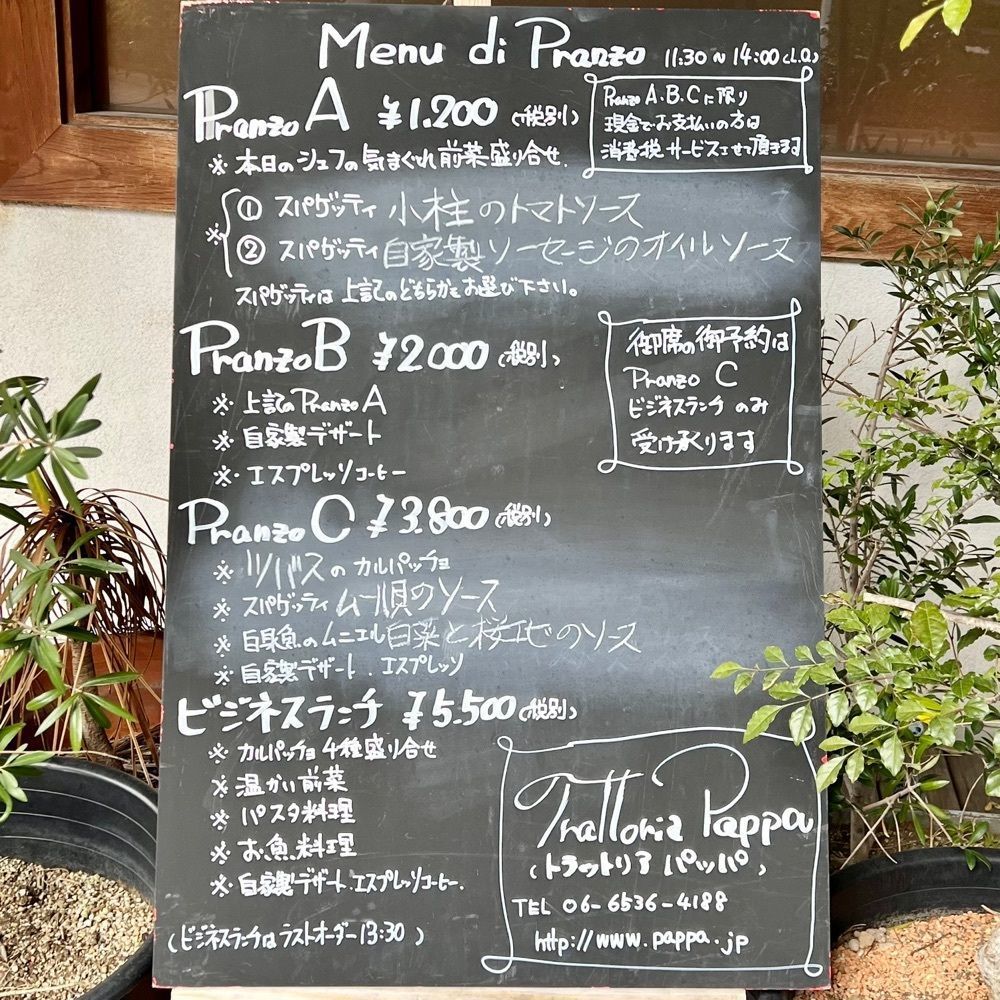 Menu di Pranzo 11:30~14:00(L.O.)
Pranzo A ¥1.200 (税別)
Pranzo A.B.Cに限り
現金でお支払いの方は
消費税サービスさせて頂きます
※ 本日のシェフの気まぐれ前菜盛り合せ.
※ ① スパゲッティ 小柱のトマトソース
② スパゲッティ 自家製ソーセージのオイルソース
スパゲッティは上記のどちらかをお選び下さい。
Pranzo B ¥2000 (税別)
※ 上記のPranzo A
※ 自家製デザート
※ エスプレッソコーヒー
御席の御予約は
Pranzo C
ビジネスランチのみ
受け承ります
Pranzo C ¥3.800 (税別)
※ ツバスのカルパッチョ
※ スパゲッティ ムール貝のソース
※ 白身魚のムニエル 白菜と のソース
※ 自家製デザート.エスプレッソ
ビジネスランチ ¥5.500 (税別)
※ カルパッチョ4種盛り合せ
※ 温かい前菜
※ パスタ料理
※ お魚料理
※ 自家製デザート.エスプレッソコーヒー.
(ビジネスランチはラストオーダー13:30)
Trattoria Pappa
(トラットリア パッパ)
TEL 06-6536-4188
http://www.pappa.jp